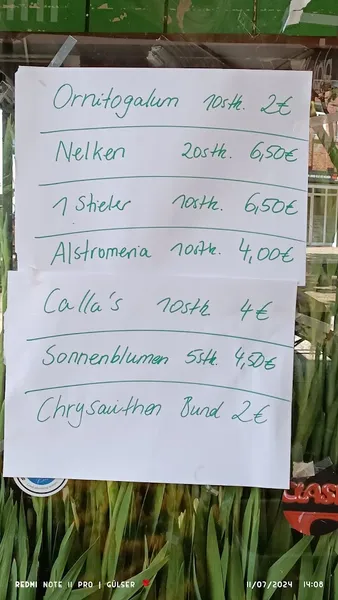 Ornitogalum 10stk. 2€
Nelken 20stk. 6,50€
1 Stieler 10stk. 6,50€
Alstromeria 10stk. 4,00€
Calla's 10stk 4€
Sonnenblumen 5stk. 4,50€
Chrysanthen Bund 2€
CLASS
REDMI NOTE 11 PRO | GÜLSER
11/07/2024 14:08